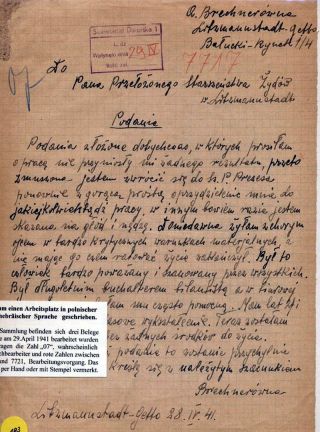 R. Brechnerówna
Litzmannstadt-Getto
Bałucki-Rynek 1/4
Sekretariat Dworska 1
L. dz.
Wpłynęło dnia 29/IV
Ilość zał.
7717
Do
Pana Przełożonego Starszeństwa Żydów
w Litzmannstadt
Podanie
Podania złożone dotychczas, w których prosiłam
o pracę nie przyniosły mi żadnego rezultatu, przeto
zmuszona jestem zwrócić się do Sz. P. Prezesa
ponownie z gorącą prośbą o przydzielenie mi
jakiejkolwiekbądź pracy, w innym bowiem razie jestem
skazana na głód i nędzę. Doniedawna żyłam z chorym
ojcem w bardzo krytycznych warunkach materjalnych, a
nie mając go czem ratować życie zakończył. Był to
człowiek bardzo poważany i szanowany przez wszystkich.
Był długoletnim buchalterem bilansistą a w biurowej
mu często pomocną. Mam lat
wykształcenie. Teraz zostałam
żadnych środków do życia.
podanie to zostanie przychylnie
kreślę się z należytym szacunkiem
Brechnerówna
Litzmannstadt-Getto 28 IV. 41.
um einen Arbeitsplatz in polnischer
hebräischer Sprache geschrieben.
Sammlung befinden sich drei Belege
e am 29.April 1941 bearbeitet wurden
ragen die Zahl „07", wahrscheinlich
chbearbeiter und rote Zahlen zwischen
und 7721, Bearbeitungsvorgang. Das
per Hand oder mit Stempel vermerkt.